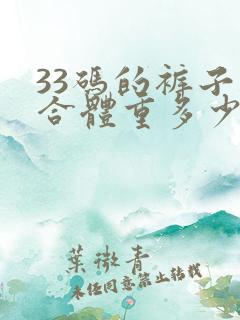 33碼的裤子
合體重多少
葉微青
未经同意禁止转载